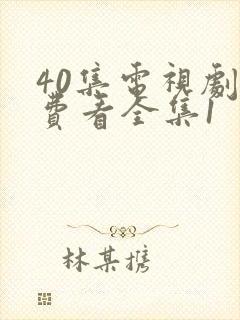 40集電視劇
費看全集1
林某攜